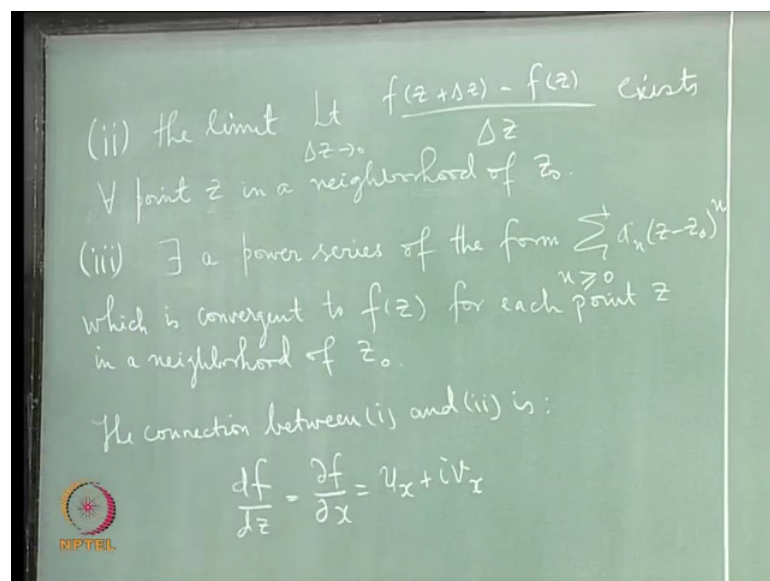 (ii) the limit Lt f(z+Δz) - f(z) / Δz exists
Δz→0
∀ point z in a neighborhood of z₀.
(iii) ∃ a power series of the form ∑ aₙ(z-z₀)ⁿ
n≥0
which is convergent to f(z) for each point z
in a neighborhood of z₀.
The connection between (i) and (ii) is:
df/dz = ∂f/∂x = uₓ + ivₓ
NPTEL